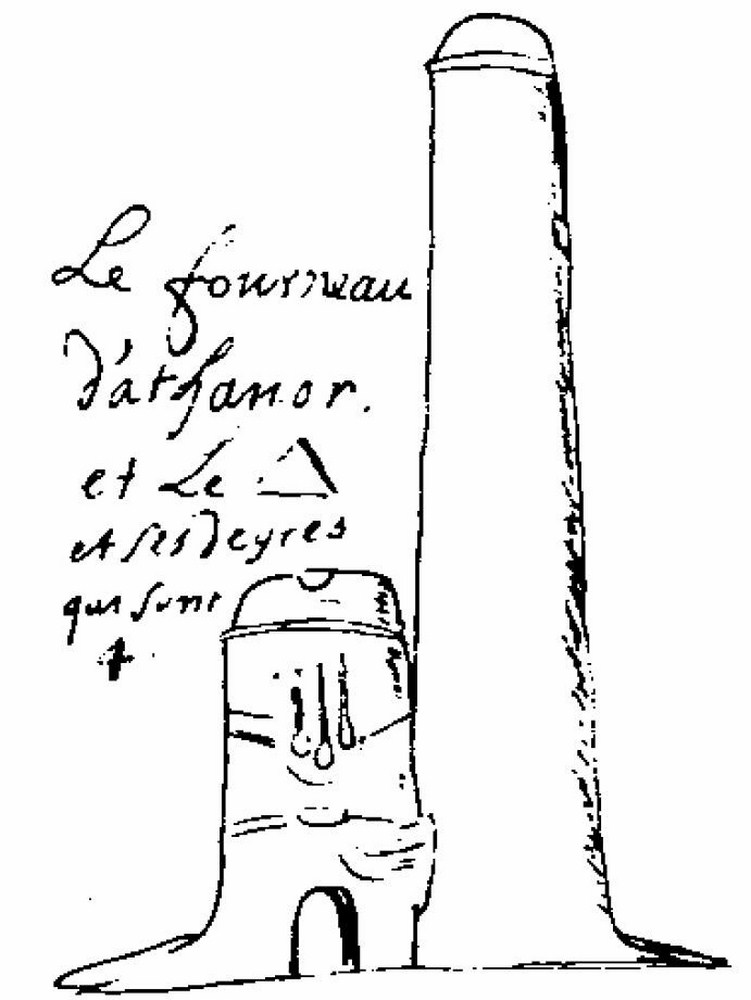 Le fourneau
d'athanor.
et Le △
et ses deyres
qui sont
4.